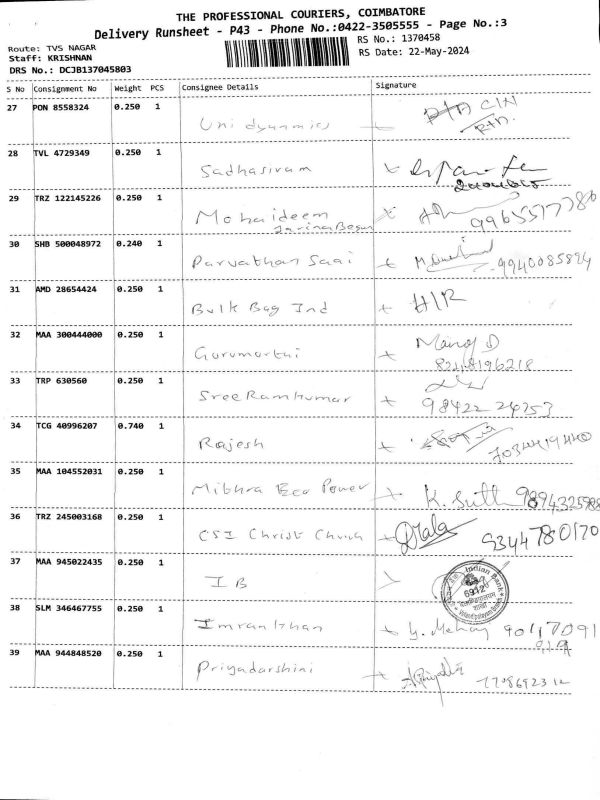 THE PROFESSIONAL COURIERS, COIMBATORE
Delivery Runsheet - P43 - Phone No.:0422-3505555 - Page No.:3
Route: TVS NAGAR
RS No.: 1370458
Staff: KRISHNAN
RS Date: 22-May-2024
DRS No.: DCJB137045803
S No Consignment No Weight PCS Consignee Details Signature
27 PON 8558324 0.250 1
Uni dyanmics
28 TVL 4729349 0.250 1
Sadhasivam
29 TRZ 122145226 0.250 1
Mohaideem
Jarina Begum
30 SHB 500048972 0.240 1
Parvathan Saai 9940085894
31 AMD 28654424 0.250 1
Bulk Bag Ind H/R
32 MAA 300444000 0.250 1
Gurumurthi Manoj D
8248196218
33 TRP 630560 0.250 1
SreeRamkumar 98422 24253
34 TCG 40996207 0.740 1
Rajesh
35 MAA 104552031 0.250 1
Mithra Eco Power K.
36 TRZ 245003168 0.250 1
CSI Christ Church Mala 9344780170
37 MAA 945022435 0.250 1
IB Indian Bank
38 SLM 346467755 0.250 1
Imrankhan
39 MAA 944848520 0.250 1
Priyadarshini 7708692312